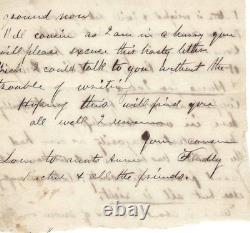 around now
Well cousin as I am in a hurry you
will please excuse this hasty letter
Wish I could talk to you without the
trouble of writing
Hoping this will find you
all well I remain
Your cousin
Love to aunt
& all the friends.